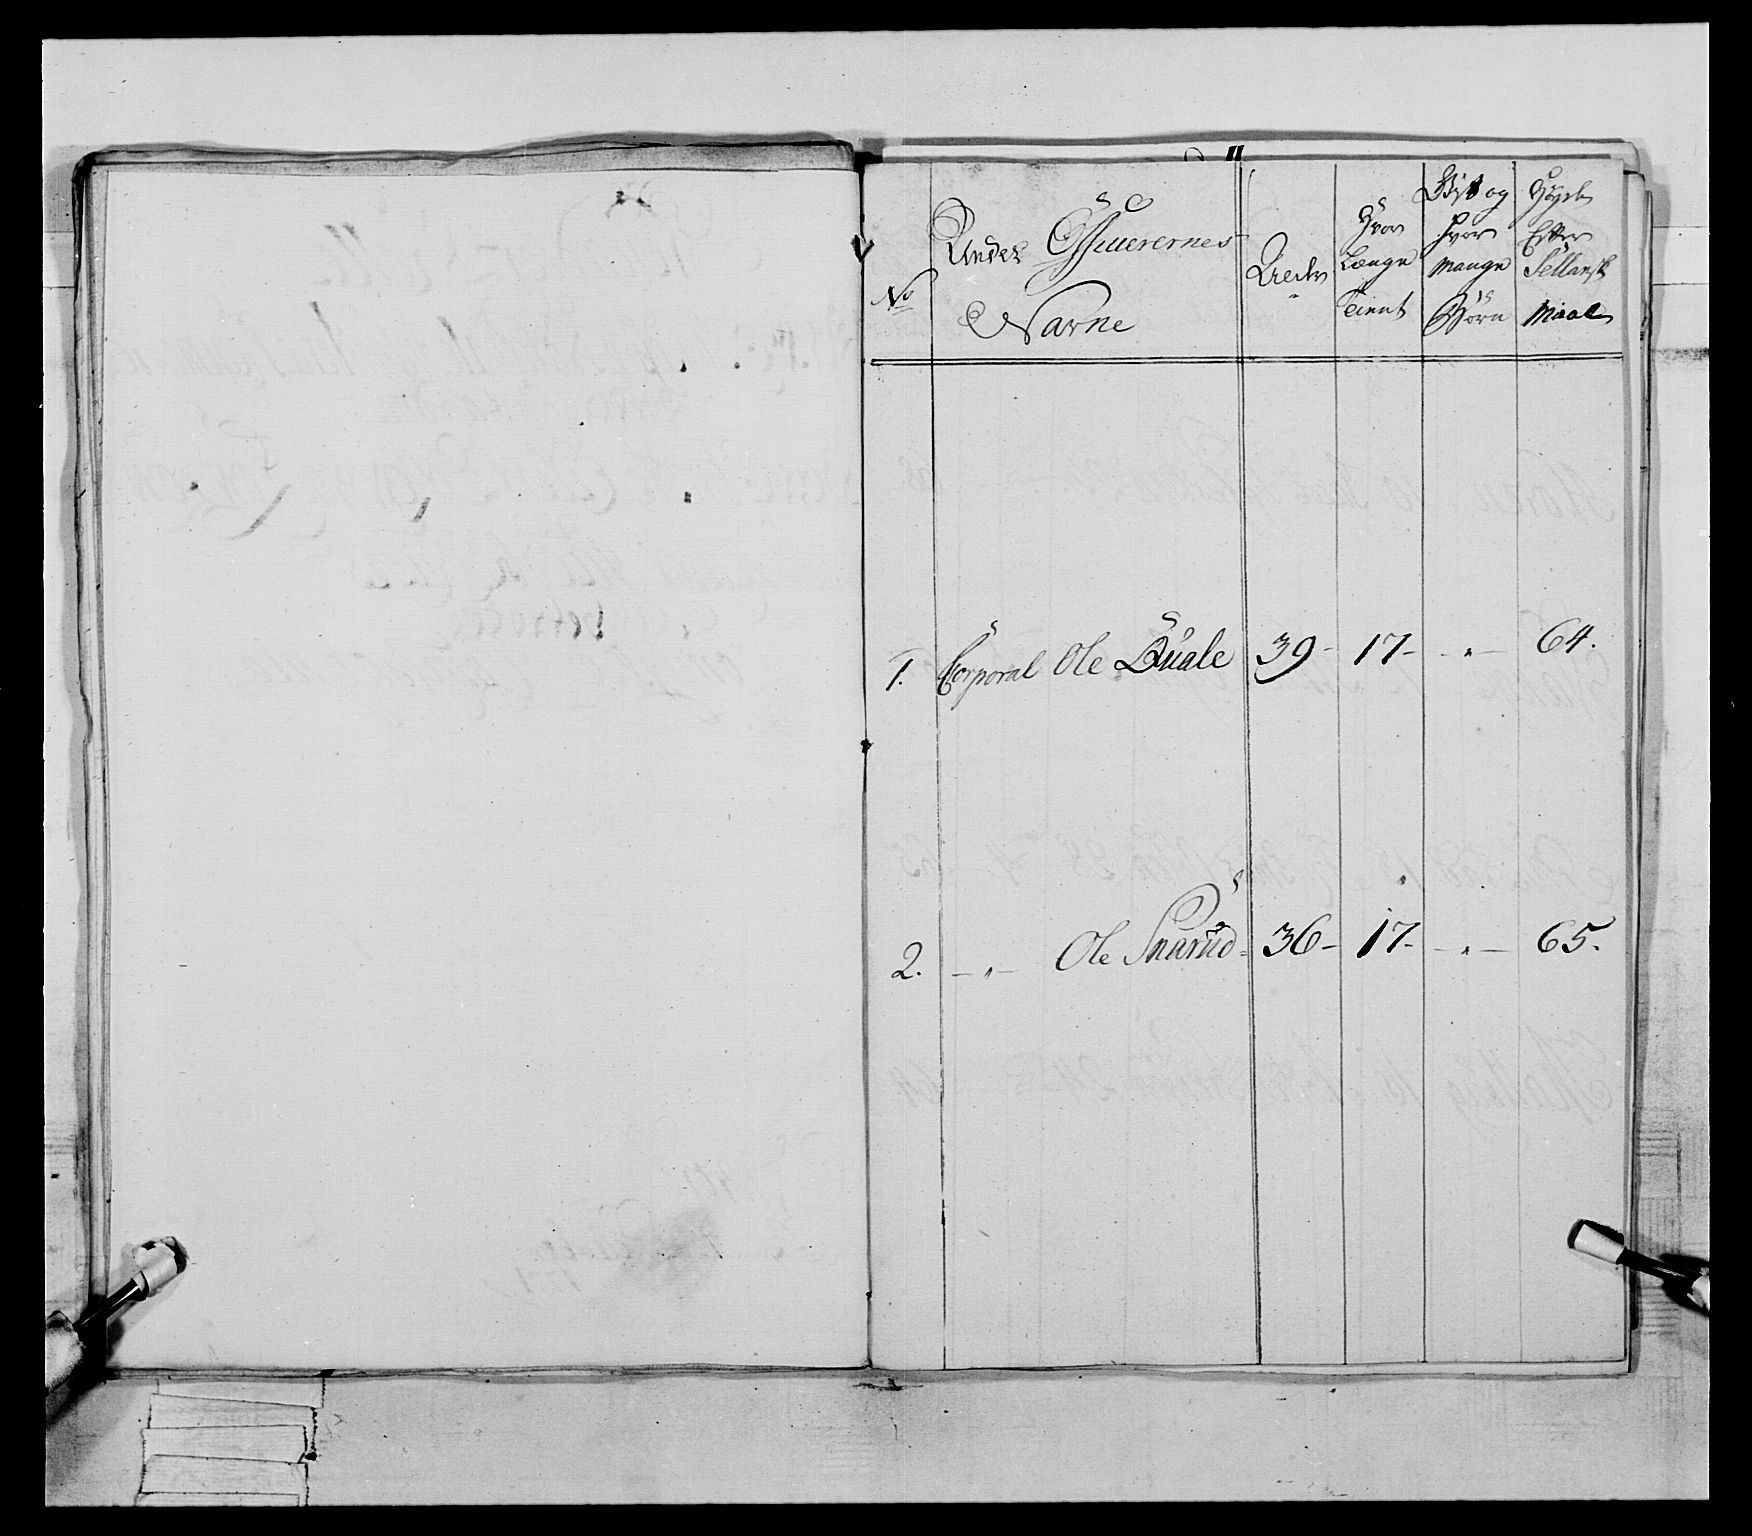 No
Under Officerernes
Navne
Alder
Hvor
Længe
Tient
Gift og
hvor
mange
Børn
Høyde
Efter
Sellansk
Maal
1. Corporal Ole Quale 39 - 17 - - " - 64.
2. - " - Ole Snarud - 36 - 17 - - " - 65.